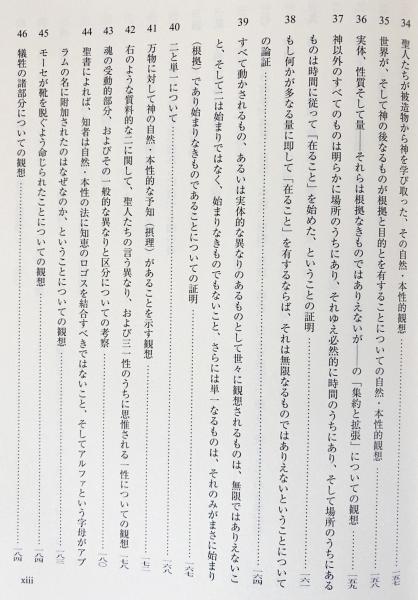 34 聖人たちが被造物から神を学び取った、その自然・本性的観想……一五七
35 世界が、そして神の後なるものが根拠と目的とを有することについての自然・本性的観想……一五八
36 実体、性質そして量――それらは根拠なきものではありえないが――の「集約と拡張」についての観想……一五九
37 神以外のすべてのものは明らかに場所のうちにあり、それゆえ必然的に時間のうちにあり、そして場所のうちにある
ものは時間に従って「在ること」を始めた、ということの証明……一六一
38 もし何かが多なる量に即して「在ること」を有するならば、それは無限なるものではありえないということについて
の論証……一六四
39 すべて動かされるもの、あるいは実体的な異なりのあるものとして世々に観想されるものは、無限ではありえないこ
と、そして二は始まりではなく、始まりなきものでもないこと、さらには単一なるものは、それのみがまさに始まり
(根拠)であり始まりなきものであることについての証明……一六七
40 二と単一について……一六八
41 万物に対して神の自然・本性的な予知(摂理)があることを示す観想……一七二
42 右のような質料的な二に関して、聖人たちの言う異なり、および三一性のうちに思惟される一性についての観想……一七八
43 魂の受動的部分、およびその一般的な異なりと区分についての考察……一八〇
44 聖書によれば、知者は自然・本性の法に知恵のロゴスを結合すべきではないこと、そしてアルファという字母がアブ
ラムの名に附加されたのはなぜなのか、ということについての観想……一八三
45 モーセが靴を脱ぐよう命じられたことについての観想……一八四
46 犠牲の諸部分についての観想……一八四
xiii